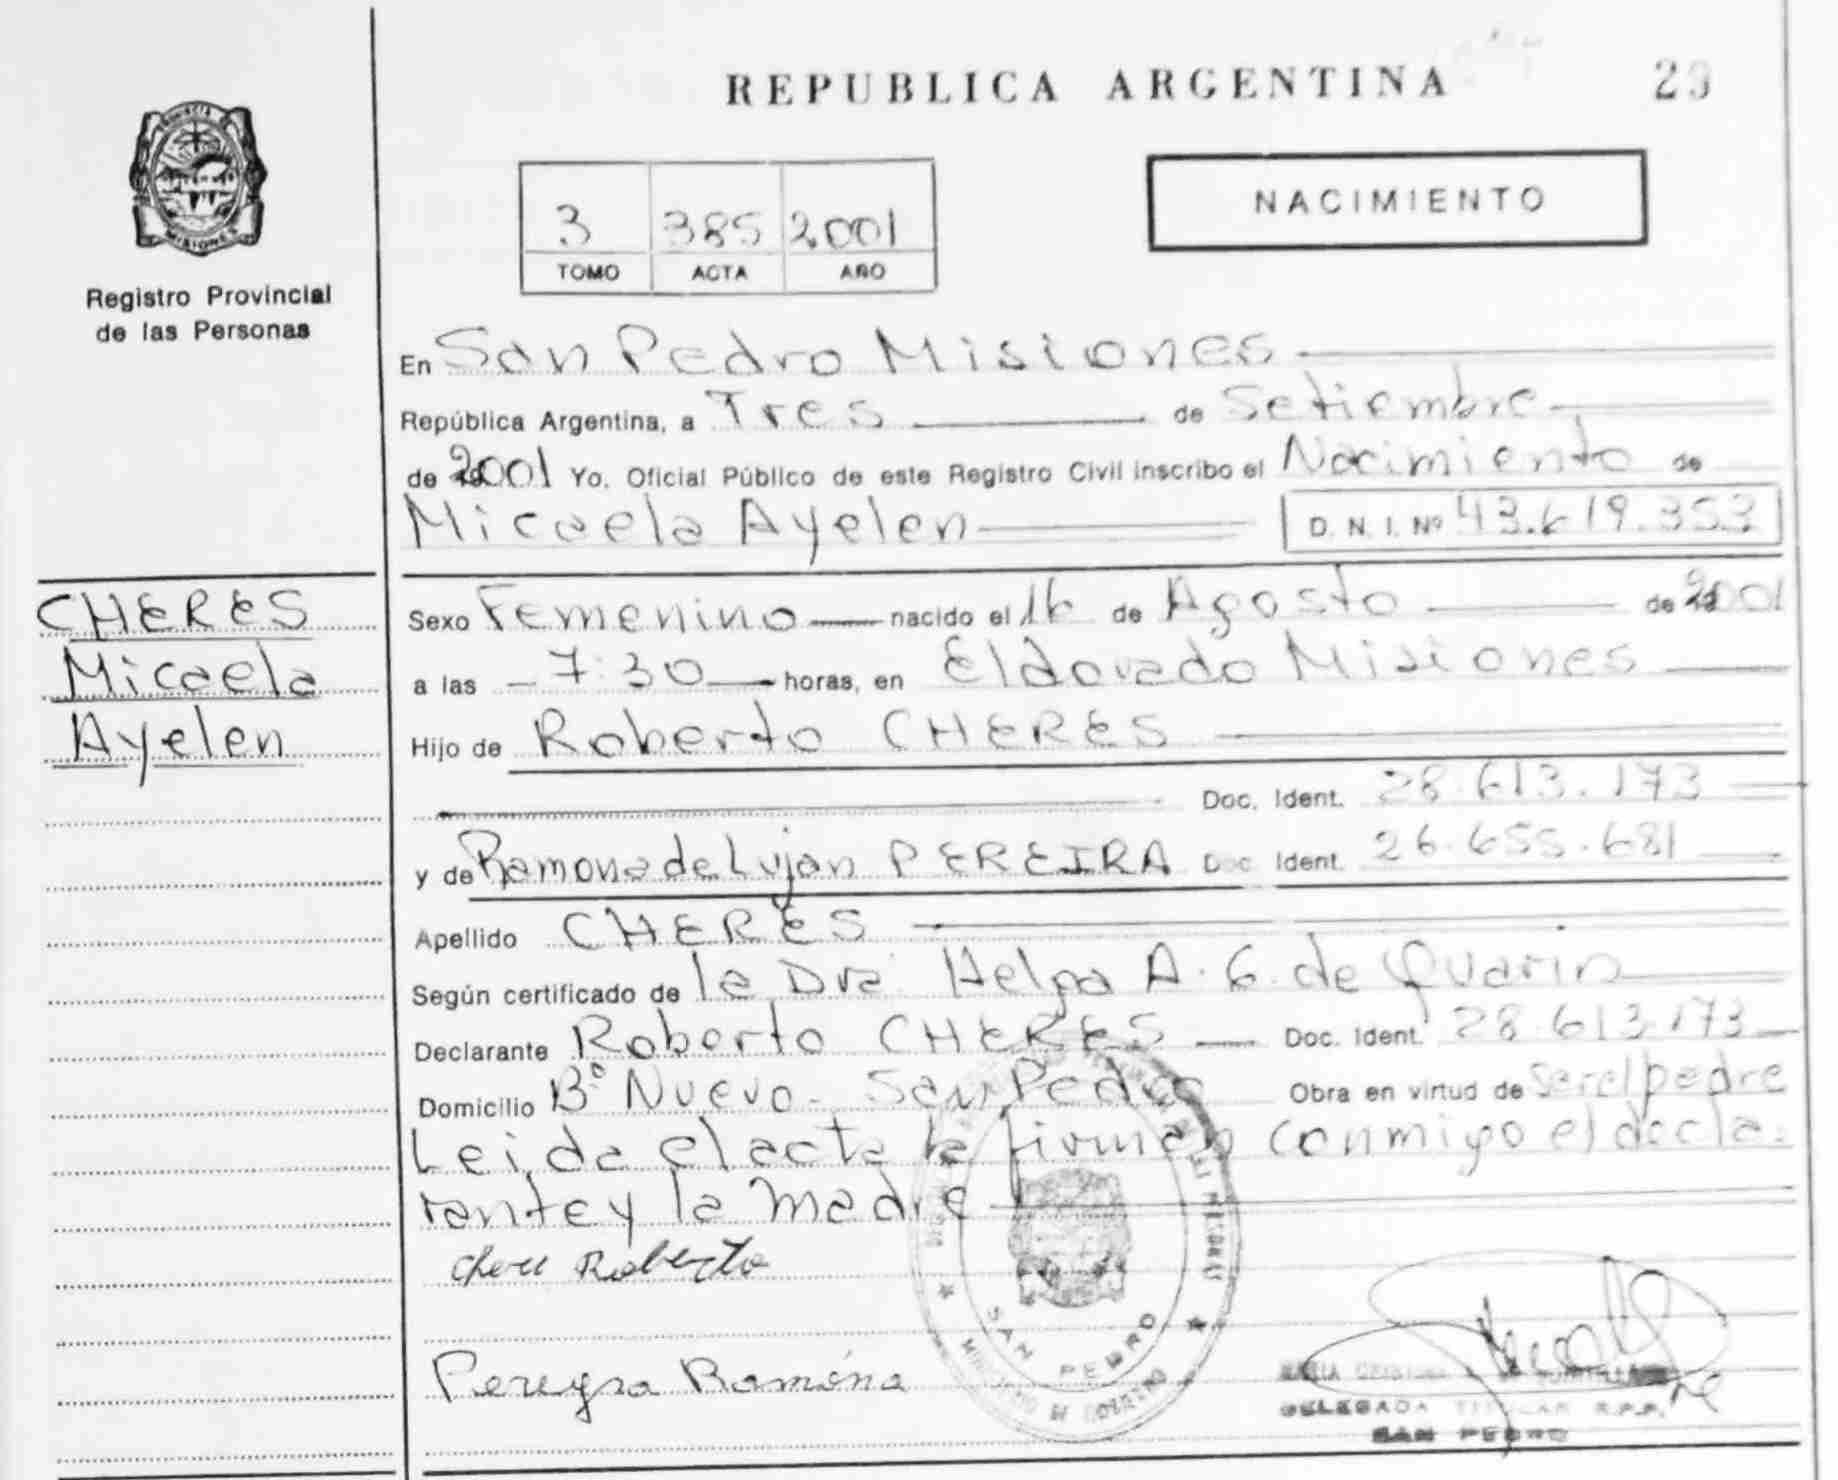 REPUBLICA ARGENTINA
23
PROVINCIA DE
MISIONES
Registro Provincial
de las Personas
3 385 2001
TOMO ACTA AÑO
NACIMIENTO
En San Pedro Misiones
República Argentina, a Tres de Setiembre
de 2001 Yo, Oficial Público de este Registro Civil inscribo el Nacimiento de
Micaela Ayelen D. N. I. Nº 43.619.353
CHERES
Micaela
Ayelen
Sexo Femenino nacido el 16 de Agosto de 2001
a las 7:30 horas, en Eldorado Misiones
Hijo de Roberto CHERES
Doc. Ident. 28.613.173
y de Ramona de Lujan PEREIRA Doc Ident. 26.655.681
Apellido CHERES
Según certificado de la Dra. Helga A. G. de Quarin
Declarante Roberto CHERES Doc. Ident. 28.613.173
Domicilio Bº Nuevo - San Pedro Obra en virtud de ser el padre
Leida el acta la firman conmigo el decla-
rante y la madre
Roberto
Pereyra Ramóna
SAN PEDRO
MINISTERIO DE GOBIERNO
MARIA CRISTINA
DELEGADA TITULAR R.P.P.
SAN PEDRO